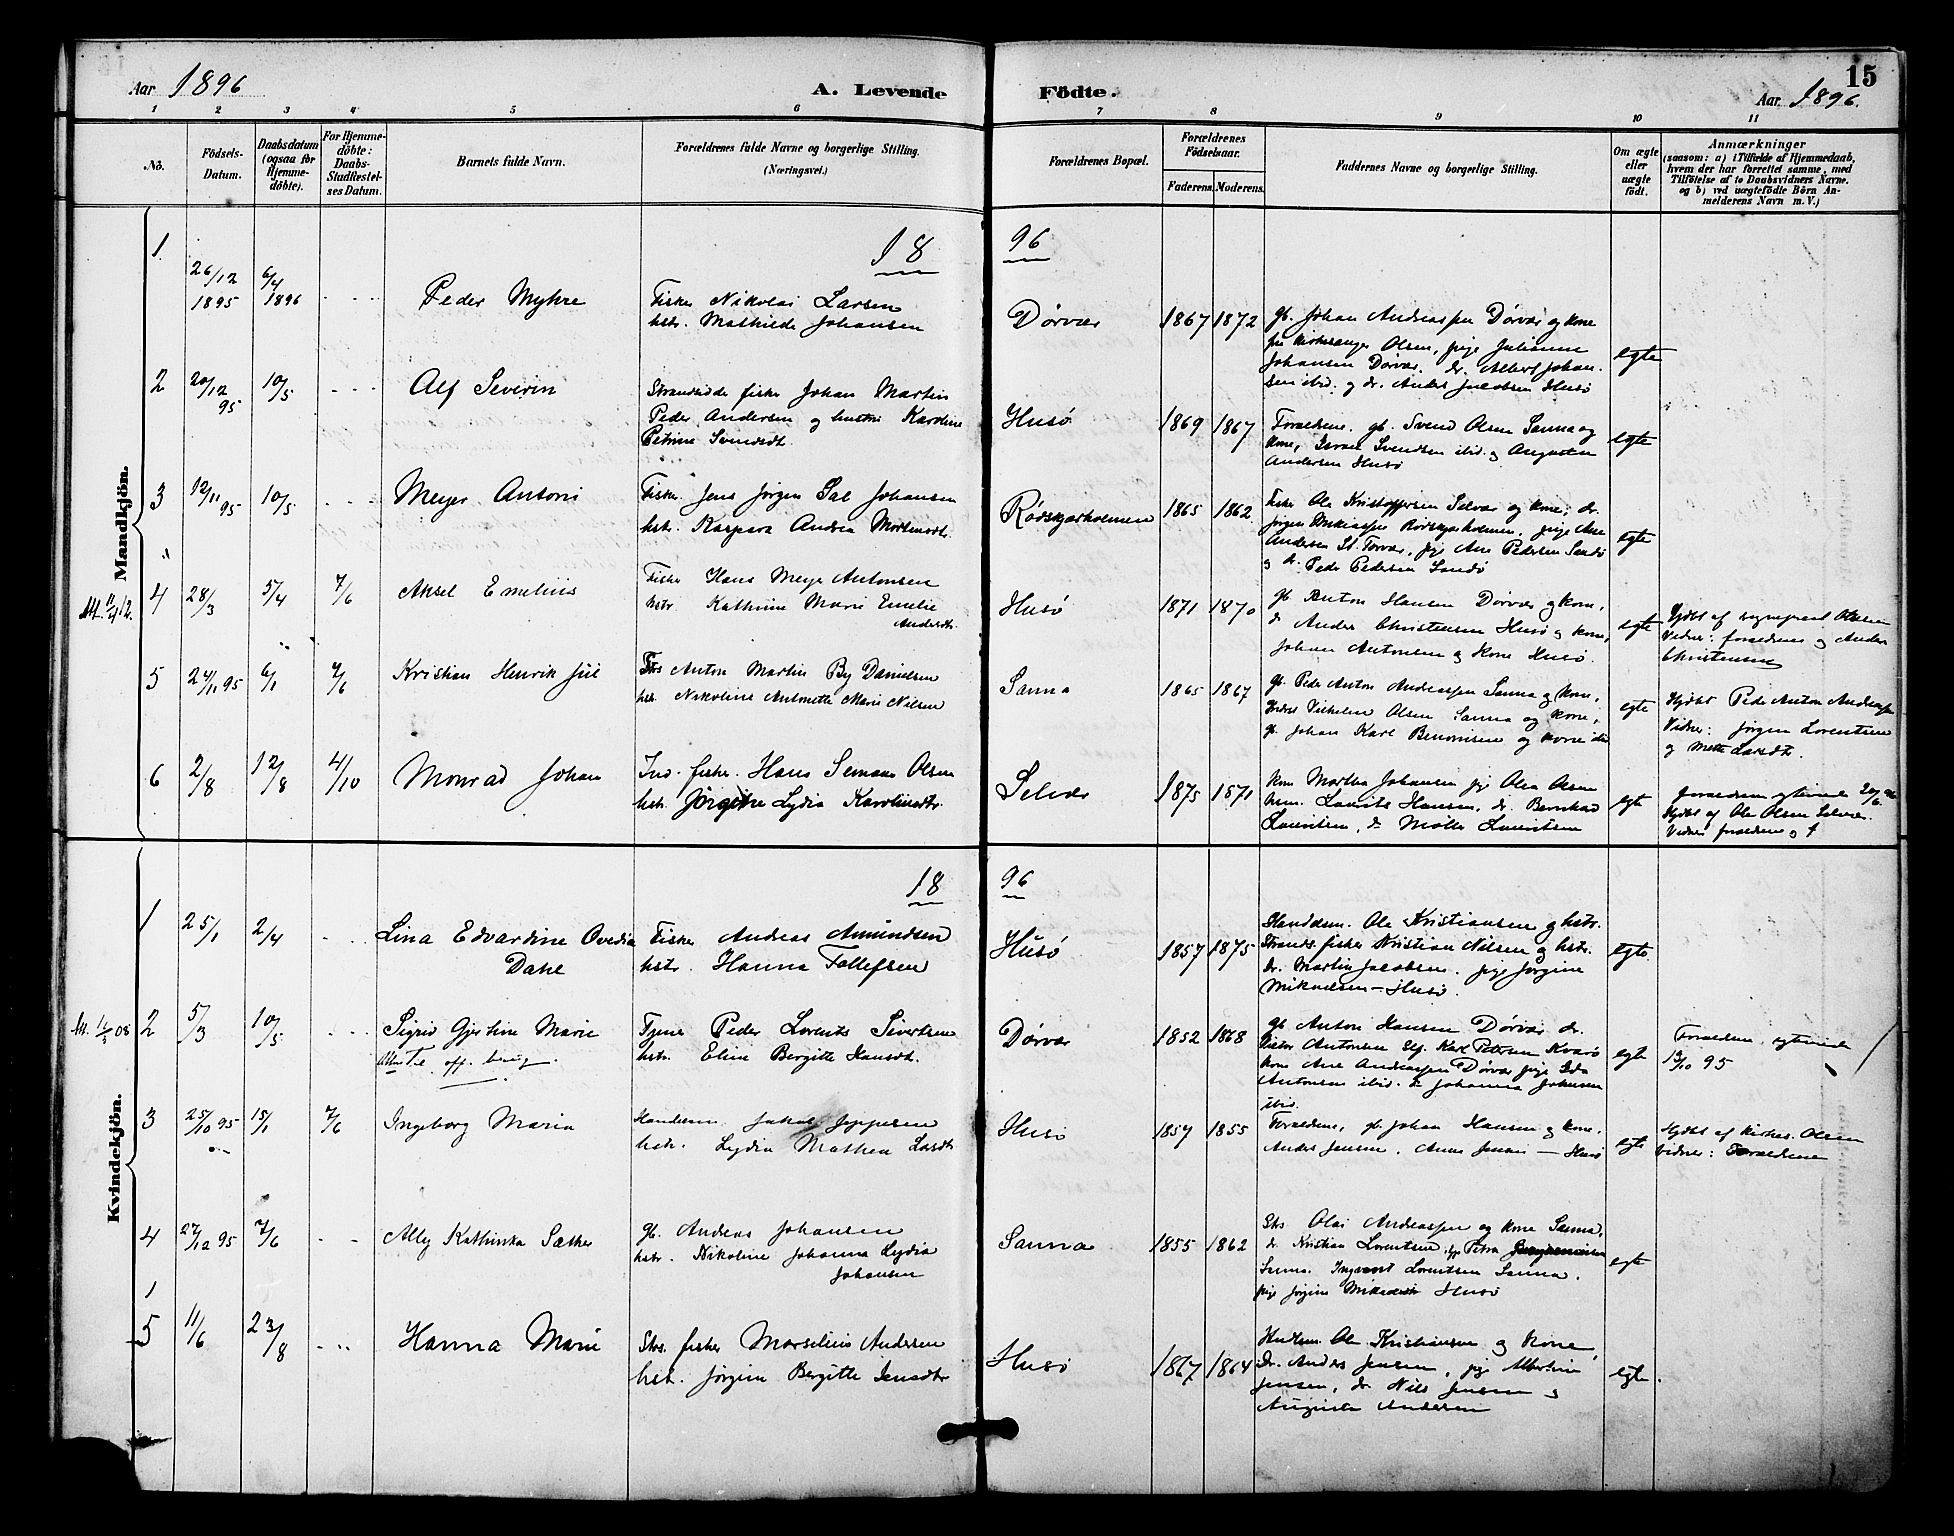 Aar 1896
A. Levende
Födte.
15
Aar 1896.
1 2 3 4 5 6 7 8 9 10 11
No.
Födsels-
Datum.
Daabsdatum
(ogsaa for
Hjemme-
döbte).
For Hjemme-
döbte:
Daabs-
Stadfæstel-
ses Datum.
Barnets fulde Navn.
Forældrenes fulde Navne og borgerlige Stilling.
(Næringsvei.)
Forældrenes Bopæl.
Forældrenes
Födselsaar.
Faderens. Moderens.
Faddernes Navne og borgerlige Stilling.
Om ægte
eller
uægte
födt.
Anmærkninger
(saasom: a) i Tilfælde af Hjemmedaab,
hvem der har forrettet samme, med
Tilföielse af to Daabsvidners Navne,
og b) ved uægtefödte Börn An-
melderens Navn m. V.)
Mandkjön.
18 96
1
26/12
1895
6/4
1896
Peder Myhre
Fisker Nikolai Larsen
hstr. Mathilde Johansen
Dørvær
1867 1872
gb. Johan Andreassen Dørvær og kone
fru kirkesanger Olsen, pige Julianne
Johansen Dørvær. dr. Albert Johan-
sen ibid. og dr. Anders Jacobsen Husø
egte
2
20/12
95
10/5
Alf Severin
Strandsidder fisker Johan Martin
Peder Andersen og hustru Karoline
Petrine Svendsdt.
Husø
1869 1867
Forældrene, gb. Svend Olsen Sanna og
kone, Svendsen ibid. og Augusta
Andersen Husø
egte
3
12/11 95
10/5
Meyer Antoni
Fisker Jens Jørgen Sal Johansen
hstr. Kaspara Andrea Mortensdtr.
Rødskjærholmen
1865 1862
Fisker Ole Kristoffersen Selvær og kone, dr.
Jørgen Rødskjærholmen, pige Ane
Andersen St. Forvær, pige Ane Pedersen Sandø
og dr. Peder Pedersen Sandø
egte
4
28/3
5/4
7/6
Aksel Emelius
Fisker Hans Meyer Antonsen
hstr. Kathrine Marie Emelie
Andersdtr.
Husø
1871 1870
gb. Anton Hansen Dørvær og kone,
dr. Anders Christensen Husø og kone,
Johan Antonsen og kone Husø.
egte
Hjdbt af sogneprest Olsen
Vidner: forældrene og Anders
Christensen
5
24/11 95
6/1
7/6
Kristian Henrik Juel
Strs Anton Martin By Danielsen
hstr. Nikoline Antonette Marie Nilsen
Sanna
1865 1867
gb. Peder Anton Andreassen Sanna og kone,
Vilhelm Olsen Sanna og kone,
gb. Johan Karl Benonisen og kone ibid
egte
Hjdbt Peder Anton Andreassen
Vidner: Jørgen Lorentsen
og Mette Larsdt.
6
2/8
12/8
4/10
Monrad Johan
Ind. fisker. Hans Semans Olsen
hstr. Jørgine Lydia Karolinsdtr.
Selvær
1875 1871
kone Martha Johansen pige Olea Olsen
Laurits Hansen, dr. Bernhard
Lauritsen, dr. Møller Lauritsen
egte
forældrene egteviede 20/6 96
Hjdbt af Ole Olsen Selvær.
Vidner forældrene
Kvindekjön.
18 96
1
25/1
2/4
Lina Edvardine Ovedia
Dahl
Fisker Andreas Amundsen
hstr. Hanna Tollefsen
Husø
1857 1875
Handelsm. Ole Kristiansen og hstr.
Strands. fisker Kristian Nilsen og hstr.
dr. Martin Jacobsen. pige Jørgine
Mikaelsen – Husø.
egte
2
5/3
10/5
Sigrid Gjertine Marie
Attest til off. brug.
Tjener Peder Lorents Sivertsen
hstr. Eline Bergitte Hansdt.
Dørvær
1852 1868
gb. Anton Hansen Dørvær. dr.
Antonsen Karl Petersen Kvarø
kone Ane Andreassen Dørvær pige Ida
Antonsen ibid. Johanna Johansen
ibid.
egte
Forældrene egteviede
13/10 95
3
25/10 95
15/1
7/6
Ingeborg Maria
Handelsm. Jakob Jeppesen
hstr. Lydia Mathea Larsdt.
Husø
1857 1855
Forældrene, gb. Johan Hansen og kone.
Anders Jensen. Anna Jensen – Husø
egte
Hjdbt af kirkes. Olsen
Vidner: Forældrene
4
27/12 95
7/6
Ally Kathinka Sæther
gb. Andreas Johansen
hstr. Nikoline Johanna Lydia
Johansen
Sanna
1855 1862
Strs Olai Andreassen og kone Sanna,
dr. Kristian Lorentsen, pige Petra
Sanna. Ingvart Lorentsen Sanna.
pige Jørgine Husø
egte
5
11/6
23/8
Hanna Marie
Strs. fisker Marselius Andersen
hstr. Jørgine Bergitte Jensdtr.
Husø
1867 1864
Handlsm. Ole Kristiansen og kone
Dr. Anders Jensen, pige Albertine
Jensen, dr. Nils Jensen og
Augusta Andersen
egte.